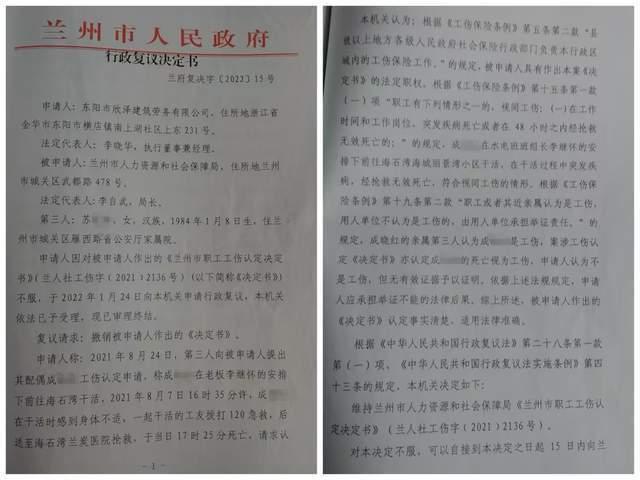 兰州市人民政府
行政复议决定书
兰府复决字〔2022〕15号
申请人：东阳市欣泽建筑劳务有限公司，住所地浙江省
金华市东阳市横店镇南上湖社区上东231号。
法定代表人：李晓华，执行董事兼经理。
被申请人：兰州市人力资源和社会保障局，住所地兰州
市城关区武都路478号。
法定代表人：李自武，局长。
第三人：苏 ，女，汉族，1984年1月8日生，住兰
州市城关区雁西路省公安厅家属院。
申请人因对被申请人作出的《兰州市职工工伤认定决定
书》（兰人社工伤字〔2021〕2136号）（以下简称《决定书》）
不服，于2022年1月24日向本机关申请行政复议，本机关
依法已予受理，现已审理终结。
复议请求：撤销被申请人作出的《决定书》。
申请人称：2021年8月24日，第三人向被申请人提出
其配偶成 工伤认定申请，称成 在老板李继怀的安排
下前往海石湾干活，2021年8月7日16时35分许，成
在干活时感到身体不适，一起干活的工友拨打120急救，后
送至海石湾兰炭医院抢救，于当日17时25分死亡，请求认
- 1 -
本机关认为：根据《工伤保险条例》第五条第二款“县
级以上地方各级人民政府社会保险行政部门负责本行政区
域内的工伤保险工作。”的规定，被申请人具有作出本案《决
定书》的法定职权。根据《工伤保险条例》第十五条第一款
（一）项“职工有下列情形之一的，视同工伤：（一）在工作
时间和工作岗位，突发疾病死亡或者在48小时之内经抢救
无效死亡的；”的规定，成 在水电班班组长李继怀的安
排下前往海石湾海城丽景湾小区干活，在干活过程中突发疾
病，经抢救无效死亡，符合视同工伤的情形。根据《工伤保
险条例》第十九条第二款“职工或者其近亲属认为是工伤，
用人单位不认为是工伤的，由用人单位承担举证责任。”的
规定，成晓红的亲属第三人认为成 是工伤，案涉工伤认
定《决定书》亦认定成 的死亡视为工伤，申请人认为不
是工伤，但无有效证据予以证明。依据上述法规规定，申请
人应承担举证不能的法律后果。综上所述，被申请人作出的
《决定书》认定事实清楚，适用法律准确。
根据《中华人民共和国行政复议法》第二十八条第一款
第（一）项、《中华人民共和国行政复议法实施条例》第四
十三条的规定，本机关决定如下：
维持兰州市人力资源和社会保障局《兰州市职工工伤认
定决定书》（兰人社工伤字〔2021〕2136号）。
对本决定不服，可以自接到本决定之日起15日内向兰